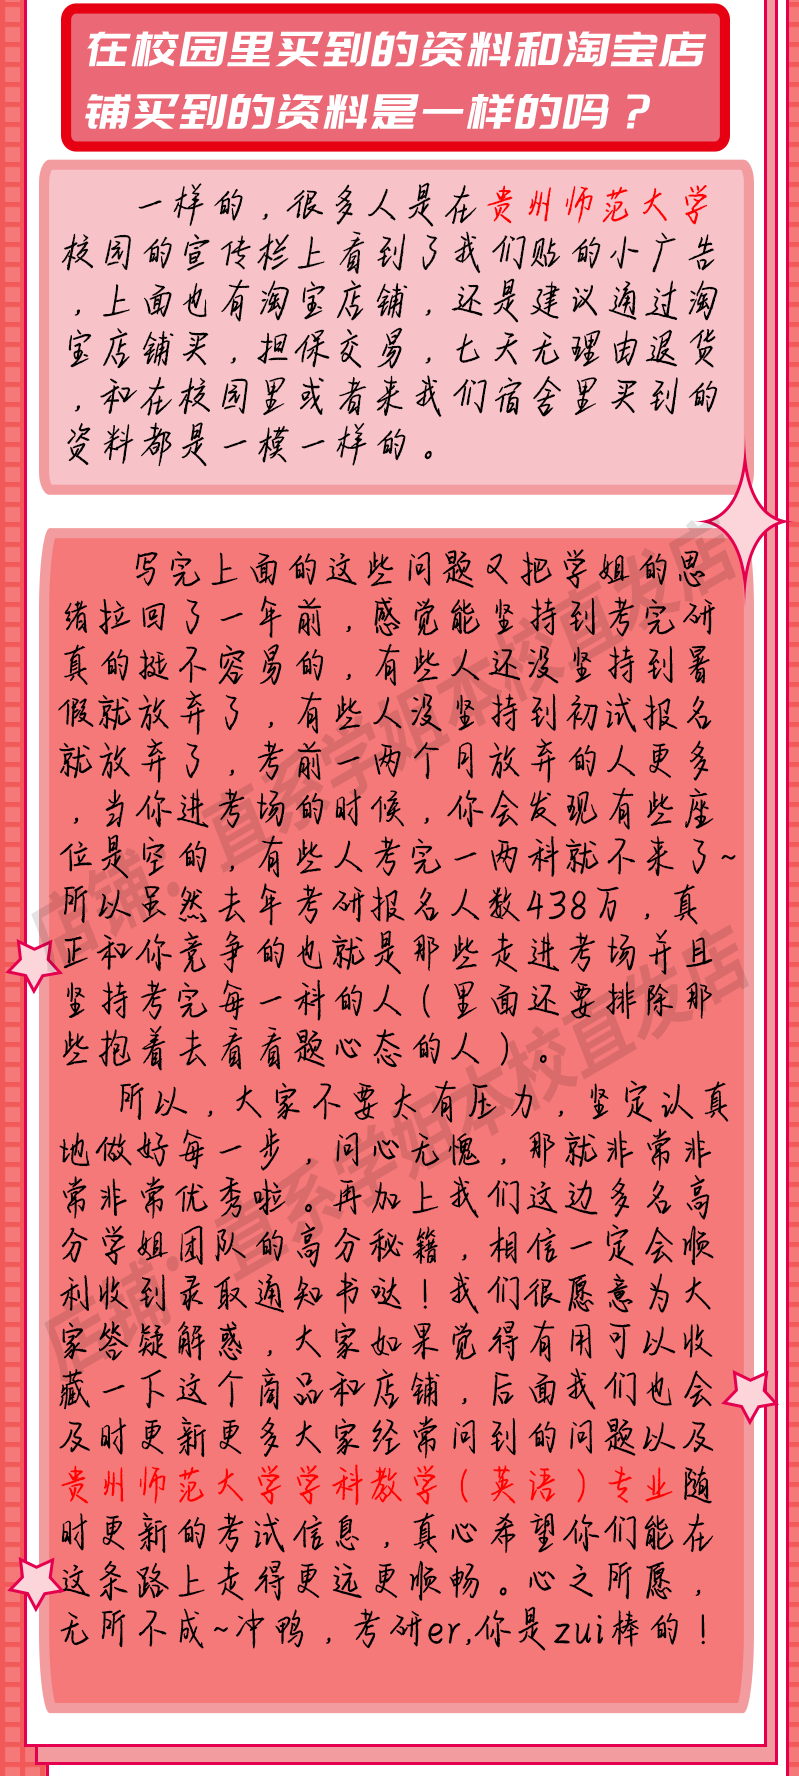 在校园里买到的资料和淘宝店
铺买到的资料是一样的吗？
一样的，很多人是在贵州师范大学
校园的宣传栏上看到了我们贴的小广告
，上面也有淘宝店铺，还是建议通过淘
宝店铺买，担保交易，七天无理由退货
，和在校园里或者来我们宿舍里买到的
资料都是一模一样的。
写完上面的这些问题又把学姐的思
绪拉回了一年前，感觉能坚持到考完研
真的挺不容易的，有些人还没坚持到暑
假就放弃了，有些人没坚持到初试报名
就放弃了，考前一两个月放弃的人更多
，当你进考场的时候，你会发现有些座
位是空的，有些人考完一两科就不来了~
所以虽然去年考研报名人数438万，真
正和你竞争的也就是那些走进考场并且
坚持考完每一科的人（里面还要排除那
些抱着去看看题心态的人）。
所以，大家不要太有压力，坚定认真
地做好每一步，问心无愧，那就非常非
常非常优秀啦。再加上我们这边多名高
分学姐团队的高分秘籍，相信一定会顺
利收到录取通知书哒！我们很愿意为大
家答疑解惑，大家如果觉得有用可以收
藏一下这个商品和店铺，后面我们也会
及时更新更多大家经常问到的问题以及
贵州师范大学学科教学（英语）专业随
时更新的考试信息，真心希望你们能在
这条路上走得更远更顺畅。心之所愿，
无所不成~冲鸭，考研er,你是zui棒的！
店铺：直系学姐本校直发店
店铺：直系学姐本校直发店